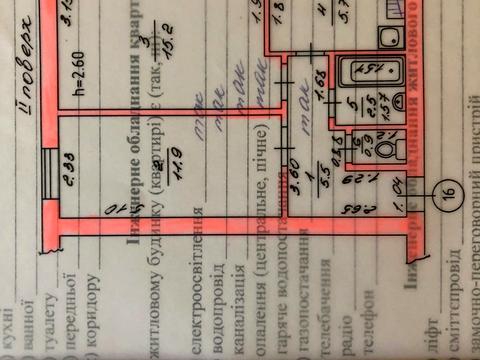 II поверх
3.13
h=2.60
3
15.2
1.9
1.8
4
5.7
2.38
2
11.9
5.10
1.68
1.54
5
2.5
1.57
3.60
1
5.5
0.88
6
0.9
1.29
2.65
1.04
16
Інженерне обладнання кварт
житловому будинку (квартирі) є (так, ні)
електроосвітлення так
водопровід так
каналізація так
опалення (центральне, пічне) так
гаряче водопостачання
газопостачання так
телебачення
радіо
телефон
кухні
ванної
туалету
передньої
коридору
Інженерне обладнання житлового
ліфт
сміттєпровід
замочно-переговорний пристрій